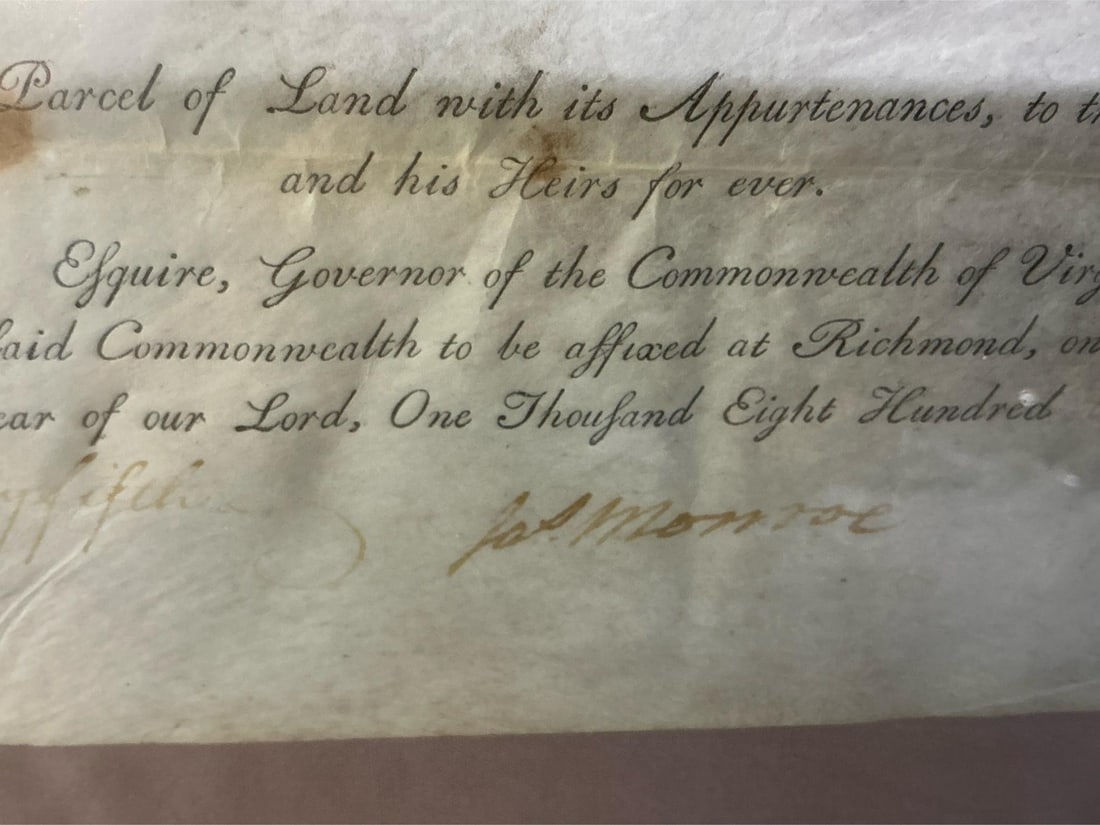 Parcel of Land with its Appurtenances, to
and his Heirs for ever.
Eſquire, Governor of the Commonwealth of Virg
ſaid Commonwealth to be affixed at Richmond, on
ear of our Lord, One Thouſand Eight Hundred
fifth
Jas. Monroe